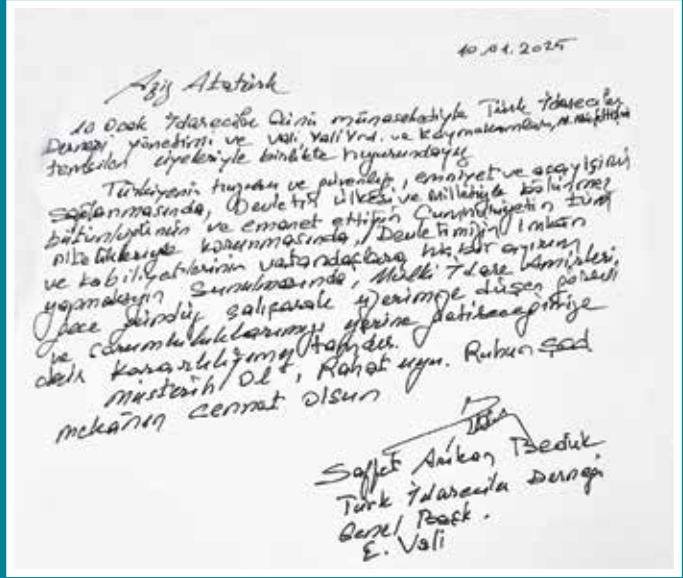 10.01.2025
Aziz Atatürk
10 Ocak İdareciler Günü münasebetiyle Türk İdareciler
Derneği yönetimi ve Vali, Vali Yrd. ve Kaymakamları,
temsilen üyeleriyle birlikte huzurundayız
Türkiyenin huzuru ve güvenliği, emniyet ve asayişinin
sağlanmasında, Devletin ülkesi ve Milletiyle bölünmez
bütünlüğünün ve emanet ettiğin Cumhuriyetin tüm
nitelikleriyle korunmasında, Devletimizin imkan
ve kabiliyetlerinin vatandaşlara hiç bir ayırım
yapmaksızın sunulmasında, Mülki İdare Amirleri,
gece gündüz çalışarak üzerimize düşen görevi
ve sorumluluklarımızı yerine getireceğimize
dair kararlılığımız tamdır.
Müsterih Ol, Rahat uyu. Ruhun şad
mekânın cennet olsun
Saffet Arıkan Bedük
Türk İdareciler Derneği
Genel Başk.
E. Vali